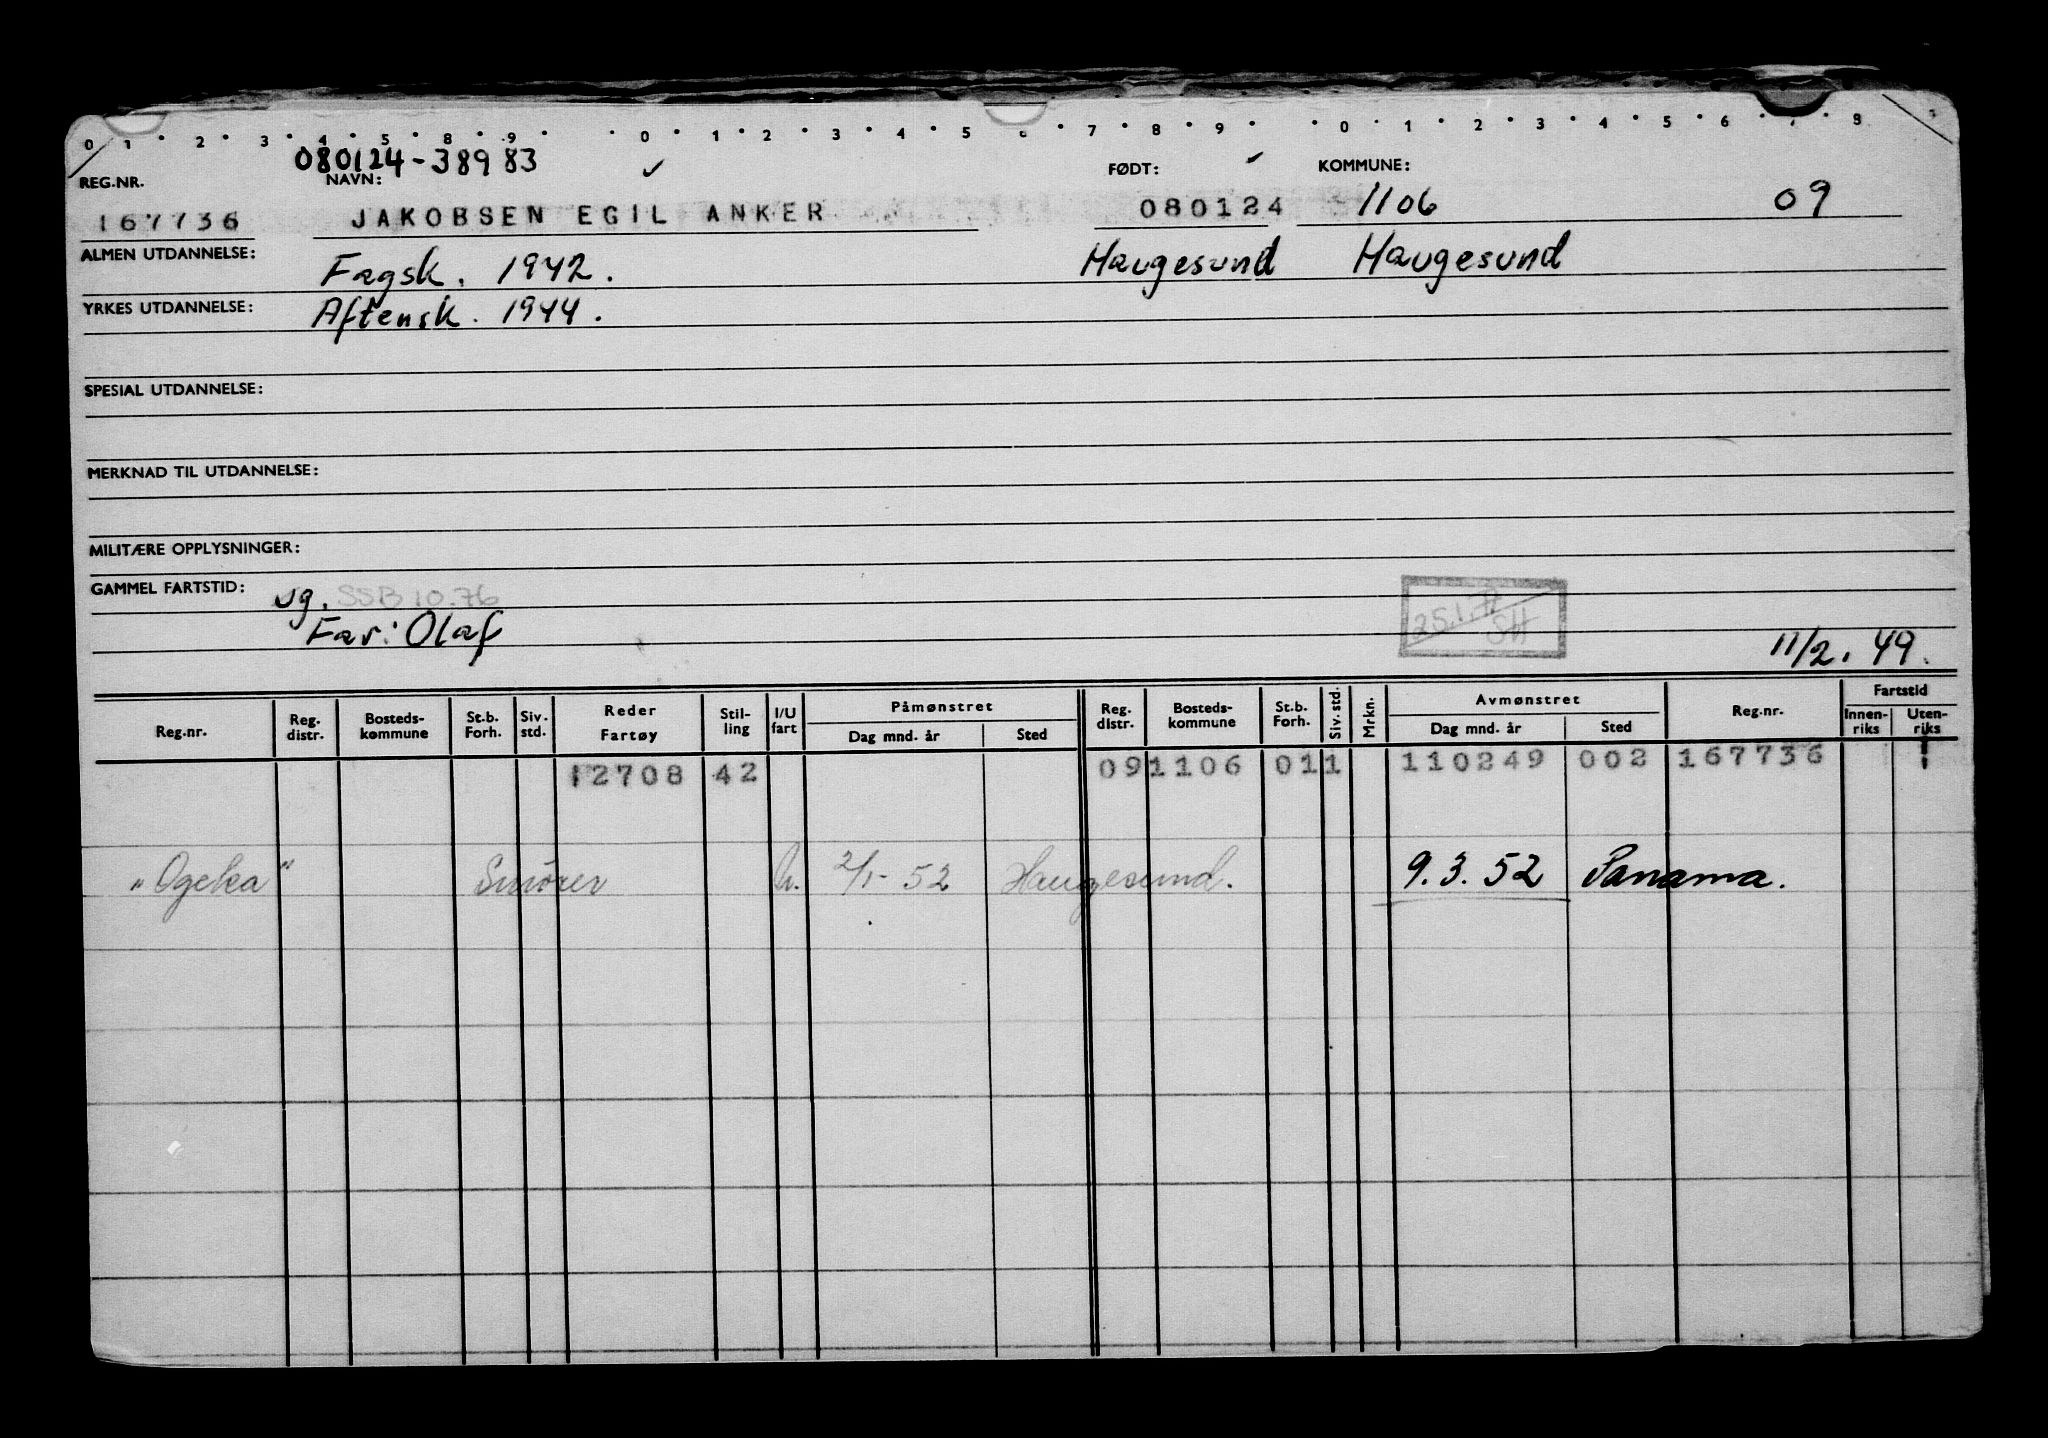 0 1 · 2 · 3 · 4 · 5 · 8 · 9 · · 0 · 1 · 2 · 3 · 4 · 5 · 6 · 7 · 8 · 9 · · 0 · 1 · 2 · 3 · 4 · 5 · 6 · 7 · 8
080124-38983
REG.NR. NAVN: FØDT: KOMMUNE:
167736 JAKOBSEN EGIL ANKER 080124 1106 09
ALMEN UTDANNELSE: Fagsk. 1942. Haugesund Haugesund
YRKES UTDANNELSE: Aftensk. 1944.
SPESIAL UTDANNELSE:
MERKNAD TIL UTDANNELSE:
MILITÆRE OPPLYSNINGER:
GAMMEL FARTSTID: ug. SSB 10.76
Far: Olaf
11/2. 49.
Reg.nr. Reg. distr. Bosteds-kommune St.b. Forh. Siv. std. Reder Fartøy Stil-ling I/U fart Påmønstret Dag mnd. år Sted Reg. distr. Bosteds-kommune St.b. Forh. Siv. std. Mrkn. Avmønstret Dag mnd. år Sted Reg.nr. Fartstid Innen-riks Uten-riks
12708 42 09 1106 01 1 110249 002 167736 1
"Ogeka" Smører U. 2/1- 52 Haugesund. 9.3.52 Panama.